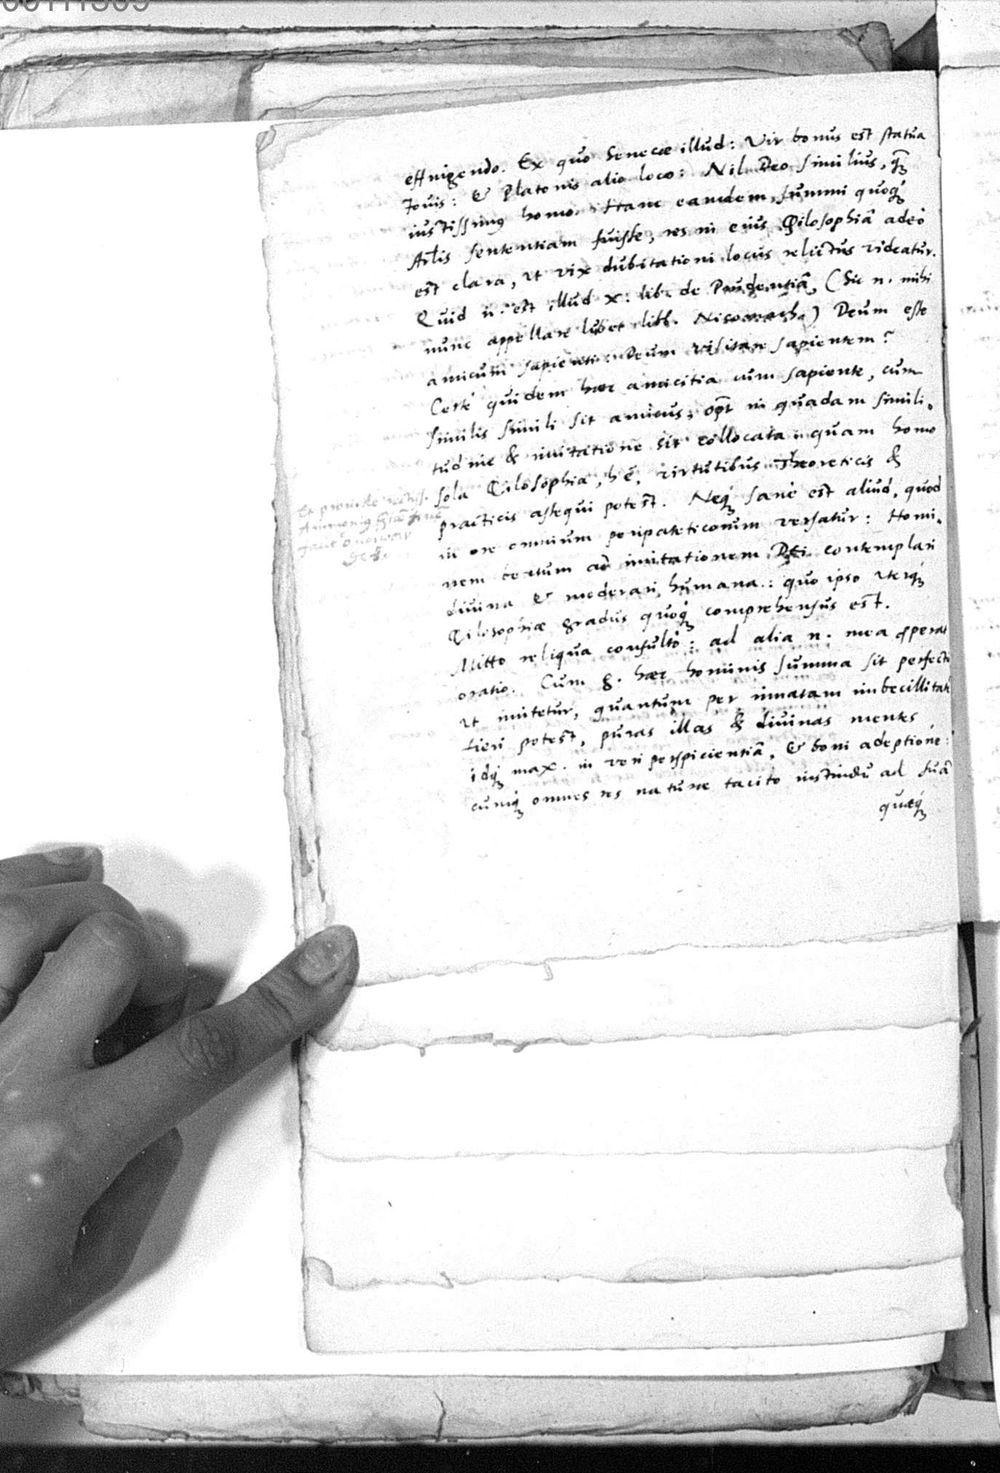 effingendo. Ex quo Senecæ illud: Vir bonus est statua
Iouis: & Platonis alio loco: Nil Deo similius, q̃
iustissimus homo. Hanc eamdem summi quoq́
Arl̃is sententiam fuisse, res in eius Φilosophiâ adeò
est clara, ut vix dubitationi locus relictus videatur.
Quid .n. est illud x. lib. de Prudentiâ, (Sic n. mihi
nunc appellare lubet lib. Nicomach.) Deum esse
amicum sapienti: Deum sapientem?
Certè quidem hæc amicitia cum sapiente, cùm
similis simili sit amicus, opt in quadam simili-
tudine & imitatione sit collocata: quam homo
sola Φilosophia, h ē, virtutibus Theoreticis &
practicis assequi potest. Neq́ sanè est aliud, quod
in ore omnium peripateticorum versatur: Homi-
nem ad imitationem Dei contemplari
diuina & moderari humana: quo ipso uterq́
Φilosophiæ gradus quoq́ comprehensus est.
Mitto reliqua consultò: ad alia n. mea properat
oratio. Cum g. hæc hominis summa sit perfectio
ut imitetur, quantum per innatam imbecillitatem
fieri potest, puras illas & diuinas mentes
idq́ max. in veri perspicientiâ, & boni adeptione:
cumq́ omnes res naturæ tacito instinctu ad suã
quæq́